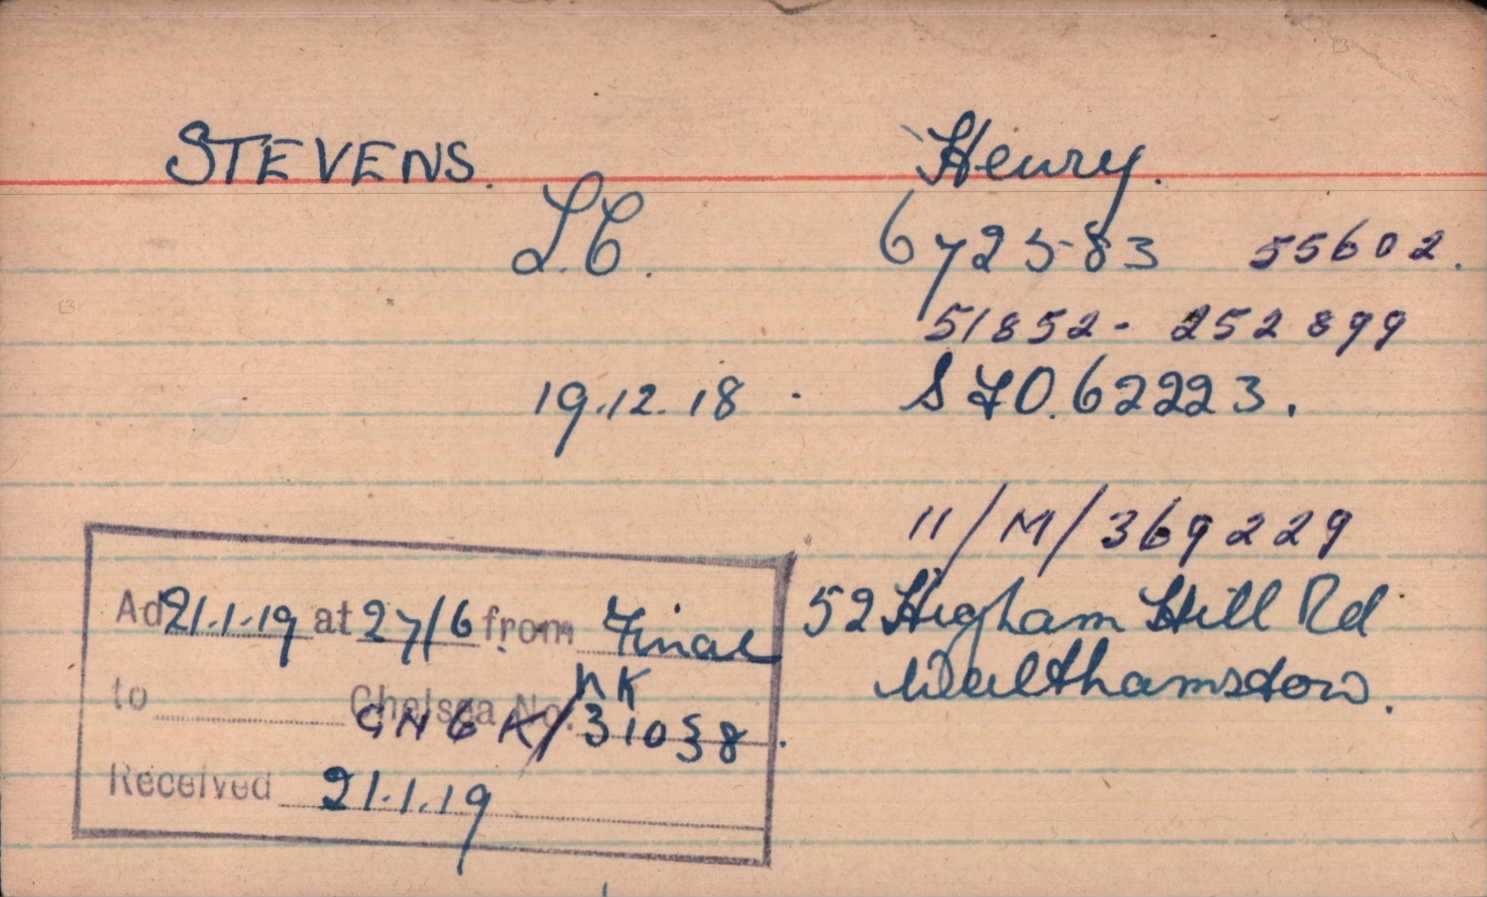 STEVENS. Henry.
L.C. 672583 55602.
51852 - 252899
19.12.18 - S40.62223.
11/M/369229
52 Higham Hill Rd
Walthamstow.
Ad 21.1.19 at 27/6 from Final
to Chelsea No. NK
31038.
Received 21.1.19